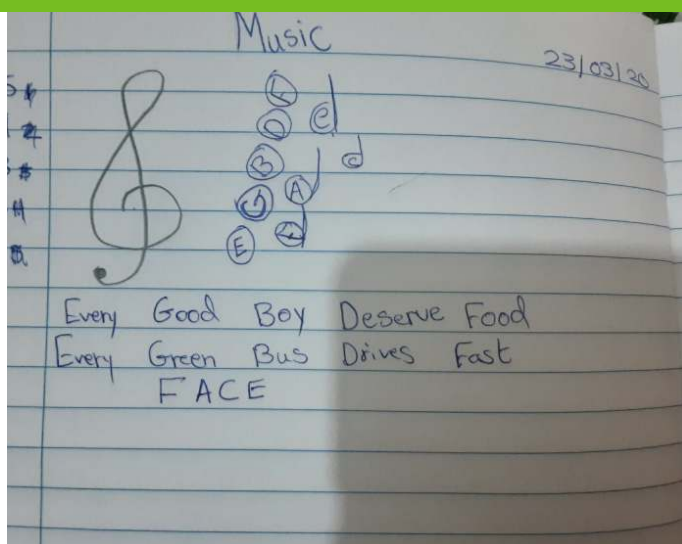 Music
23/03/20
F
D
e
B
d
G
A
E
Every Good Boy Deserve Food
Every Green Bus Drives Fast
FACE